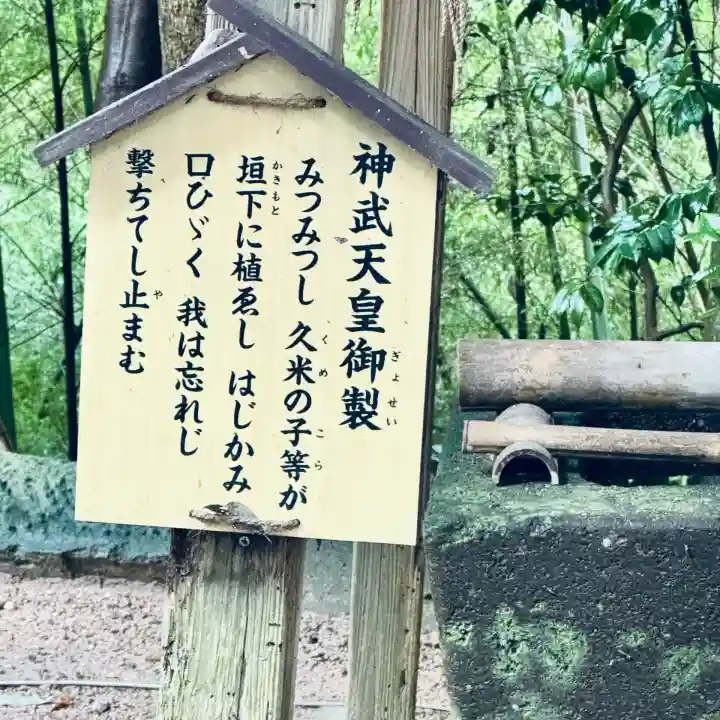 神武天皇御製
みつみつし 久米の子等が
垣下に植ゑし はじかみ
口ひゞく 我は忘れじ
撃ちてし止まむ
ぎょせい
くめ
こら
かきもと
や